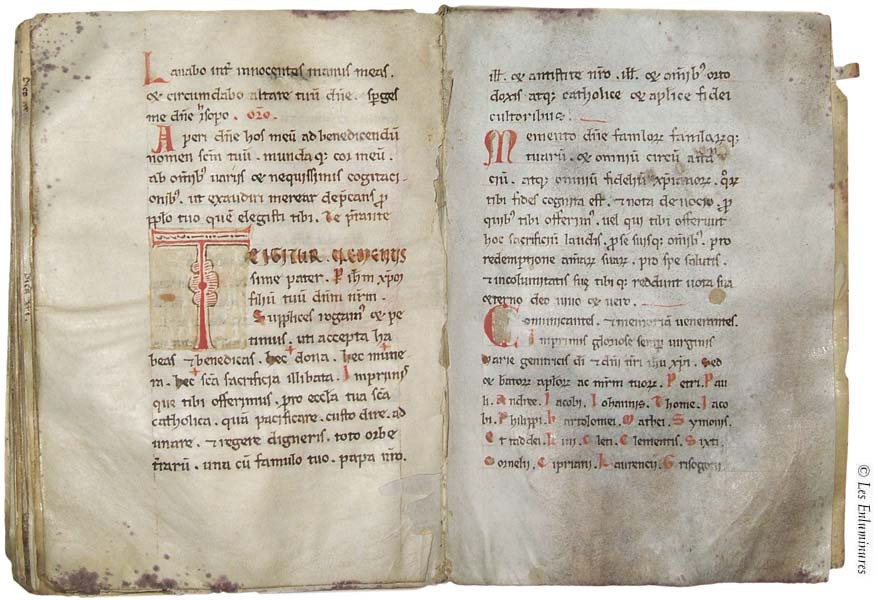 Lauabo int̄ innocentes manus meas.
⁊ circundabo altare tuū dn̄e. Sp̱ges
me dn̄e ẏsopo. oro.
Aperi dn̄e hos meū ad benedicendū
nomen sc̄m tuū. munda q; cor meū.
ab om̄ib; uariis ⁊ nequissimis cogitaci
onib;. ut exaudiri merear dep̄cans p̱
pp̄lo tuo quē elegisti tibi. Te p̄stante
TE IGITUR CLEMENTIS
sime pater. P ih̄m xp̄m
filiū tuū dn̄m nr̄m.
Supplices rogam⁹ ⁊ pe
timus. uti accepta ha
beas ⁊ benedicas. hec + dona. hec mune
ra. hec + sc̄a sacrificia illibata. Inprimis
que tibi offerimus. pro eccl̄a tua sc̄a
catholica. quā pacificare. custodire. ad
unare. ⁊ regere digneris. toto orbe
t̄rarū. una cū famulo tuo. papa nr̄o.
ill̄. ⁊ antistite nr̄o. ill̄. ⁊ om̄ib; orto
doxis atq; catholice ⁊ ap̄lice fidei
cultoribus.
Memento dn̄e famulor̄ famularq;
tuarū. ⁊ omniū circū asta
ciū. atq; omniū fideliū xp̄ianor̄. qr̄
tibi fides cognita est. ⁊ nota deuocio. p̱
quib; tibi offerim⁹. uel qui tibi offerunt
hoc sacrificiū laudis. p̱ se suisq; om̄ib;. pro
redemptione animar̄ suar̄. pro spe salutis.
⁊ incolumitatis sue tibi q; reddunt uota sua
eterno deo uiuo ⁊ uero.
Comunicantes. ⁊ memoriā uenerantes.
Inprimis gloriose semp̱ uirginis
Marie genitricis di̅ ⁊ dn̄i nr̄i ih̄u xp̄i. Sed
⁊ beator̄ aplor̄ ac mr̄m tuor̄. Petri. Pau
li. Andree. Iacobi. Iohannis. Thome. Iaco
bi. Philippi. Bartolomei. Mathei. Symonis.
Et taddei. Lini. Cleti. Clementis. Sixti.
Cornelii. Cipriani. Laurencii. Grisogoni.
© Les Enluminures